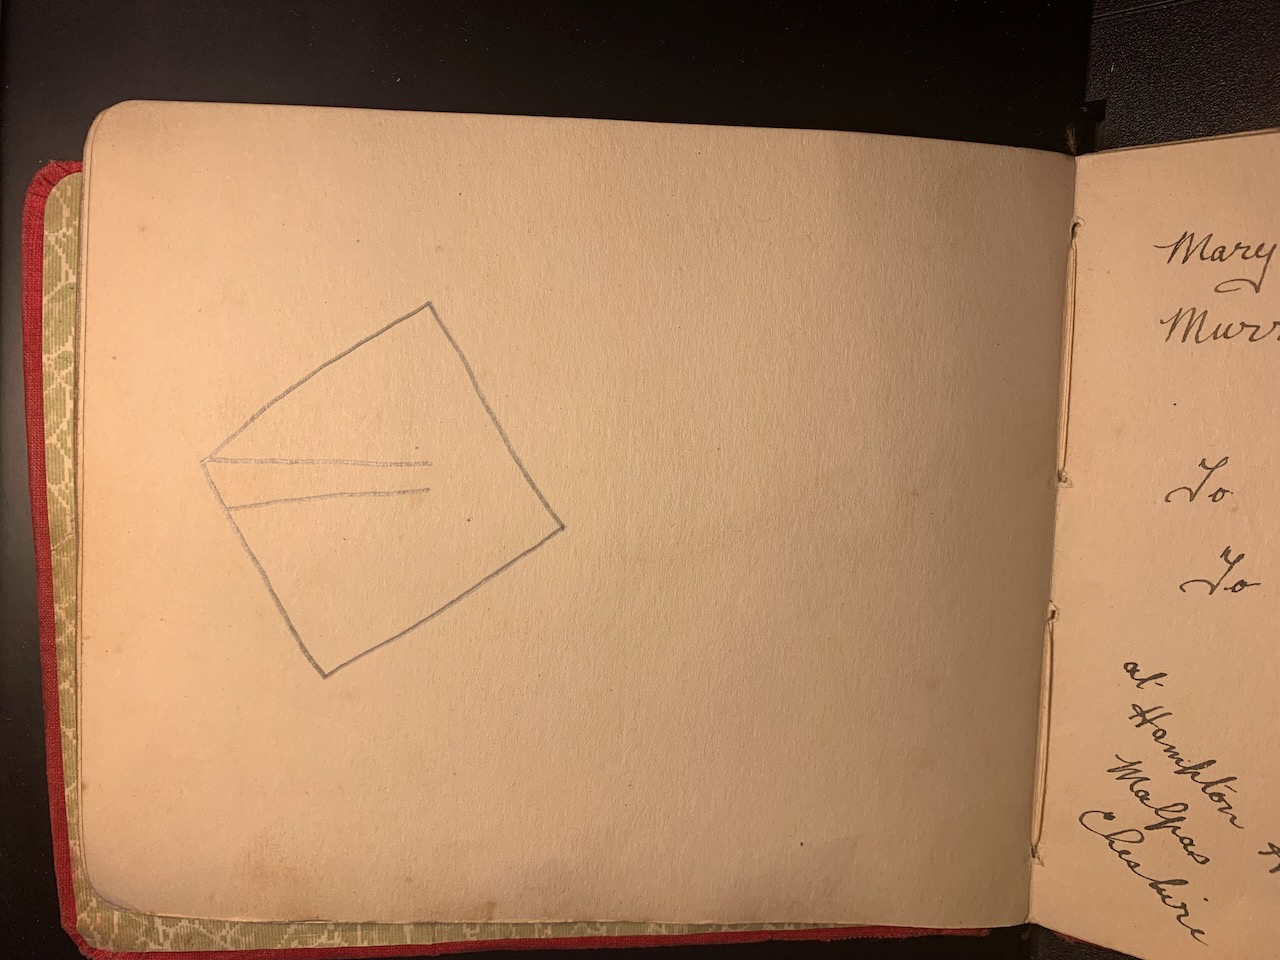 Mary
Murr
To
To
at Hampton
Malpas
Cheshire